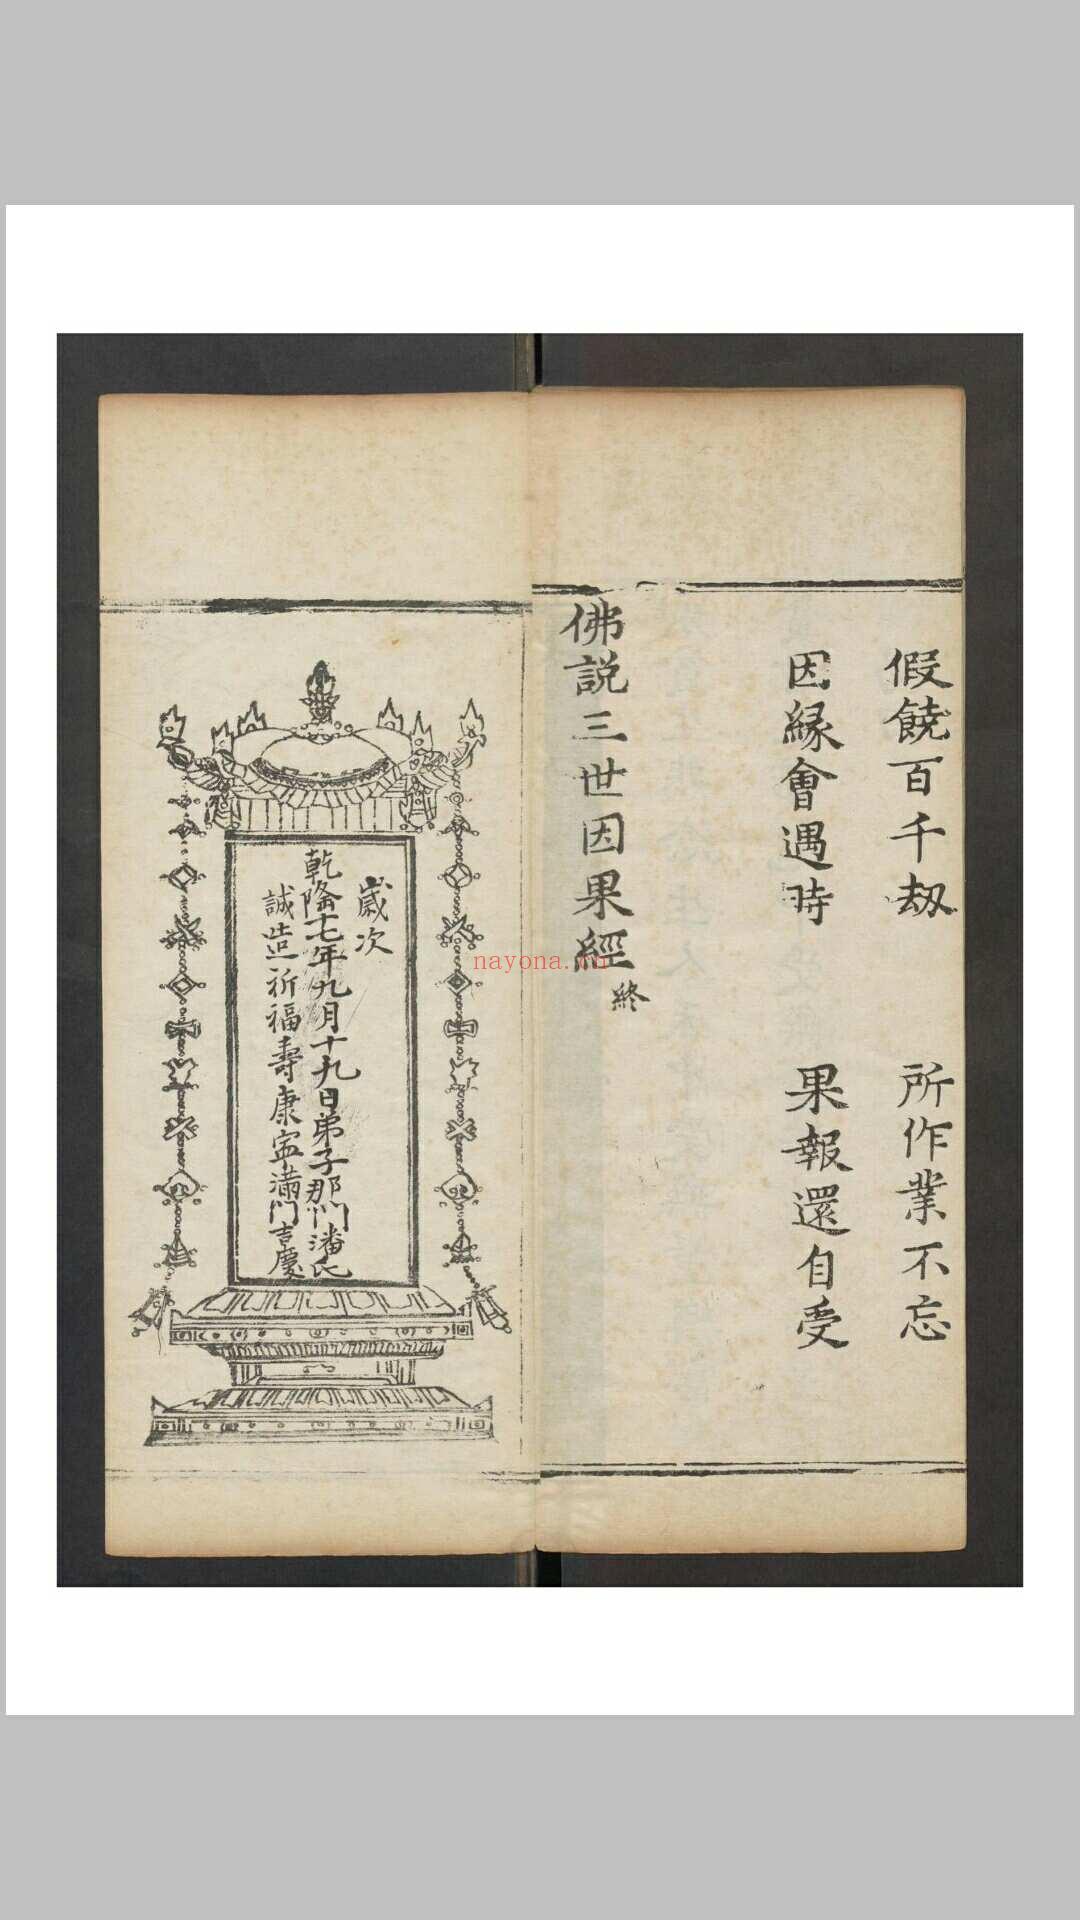 假饒百千劫　所作業不忘
因緣會遇時　果報還自受
佛説三世因果經終
歲次
乾隆十七年九月十九日弟子那門潘氏
誠造祈福壽康寧滿門吉慶
nayona.cn